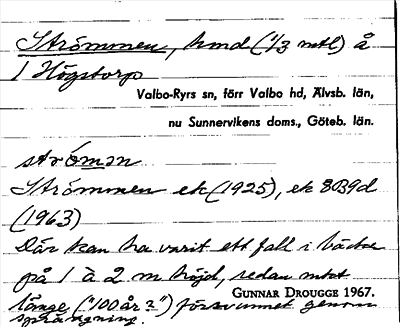 Strömmen, hmd (1/3 mtl) å
1 Högstorp
Valbo-Ryrs sn, förr Valbo hd, Älvsb. län,
nu Sunnervikens doms., Göteb. län.
strömən
Strömmen ek (1925), ek 8B9d
(1963)
Där kan ha varit ett fall i bäcken
på 1 à 2 m höjd, sedan mkt
länge ("100 år?") försvunnet genom
sprängning.
GUNNAR DROUGGE 1967.